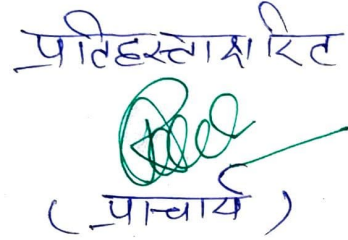 प्रतिहस्ताक्षरित
(प्राचार्य)